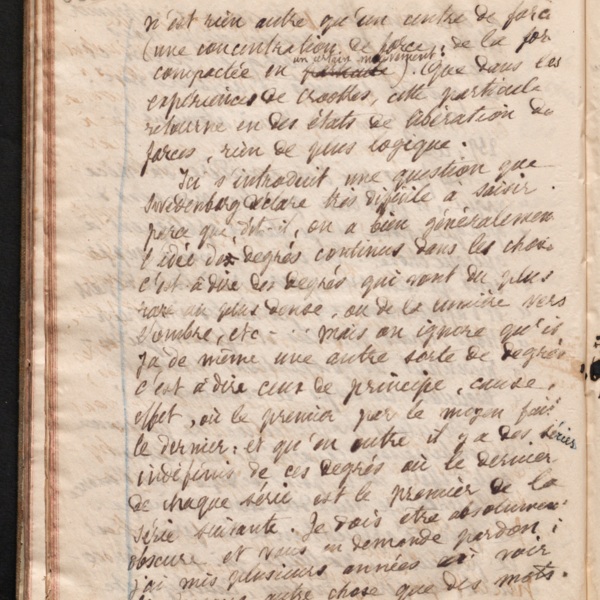 n'est rien autre qu'un centre de force
(une concentration de force, de la for
compactée en un certain mouvement). Que dans les
expériences de Crookes, cette particule
retourne en des états de libération de
forces, rien de plus logique.
Ici s'introduit une question que
Swedenborg déclare très difficile à saisir
parce que, dit-il, on a bien généralement
l'idée des degrés continus dans les choses
c'est à dire des degrés qui vont du plus
rare au plus dense, ou de la lumière vers
l'ombre, etc - ... mais on ignore qu'il
y a de même une autre sorte de degrés
c'est à dire ceux de principe, cause,
effet, où le premier par le moyen fait
le dernier: et qu'en outre il y a des séries
indéfinies de ces degrés où le dernier
de chaque série est le premier de la
série suivante. Je dois être absolument
obscure et vous en demande pardon;
j'ai mis plusieurs années à voir
autre chose que des mots.